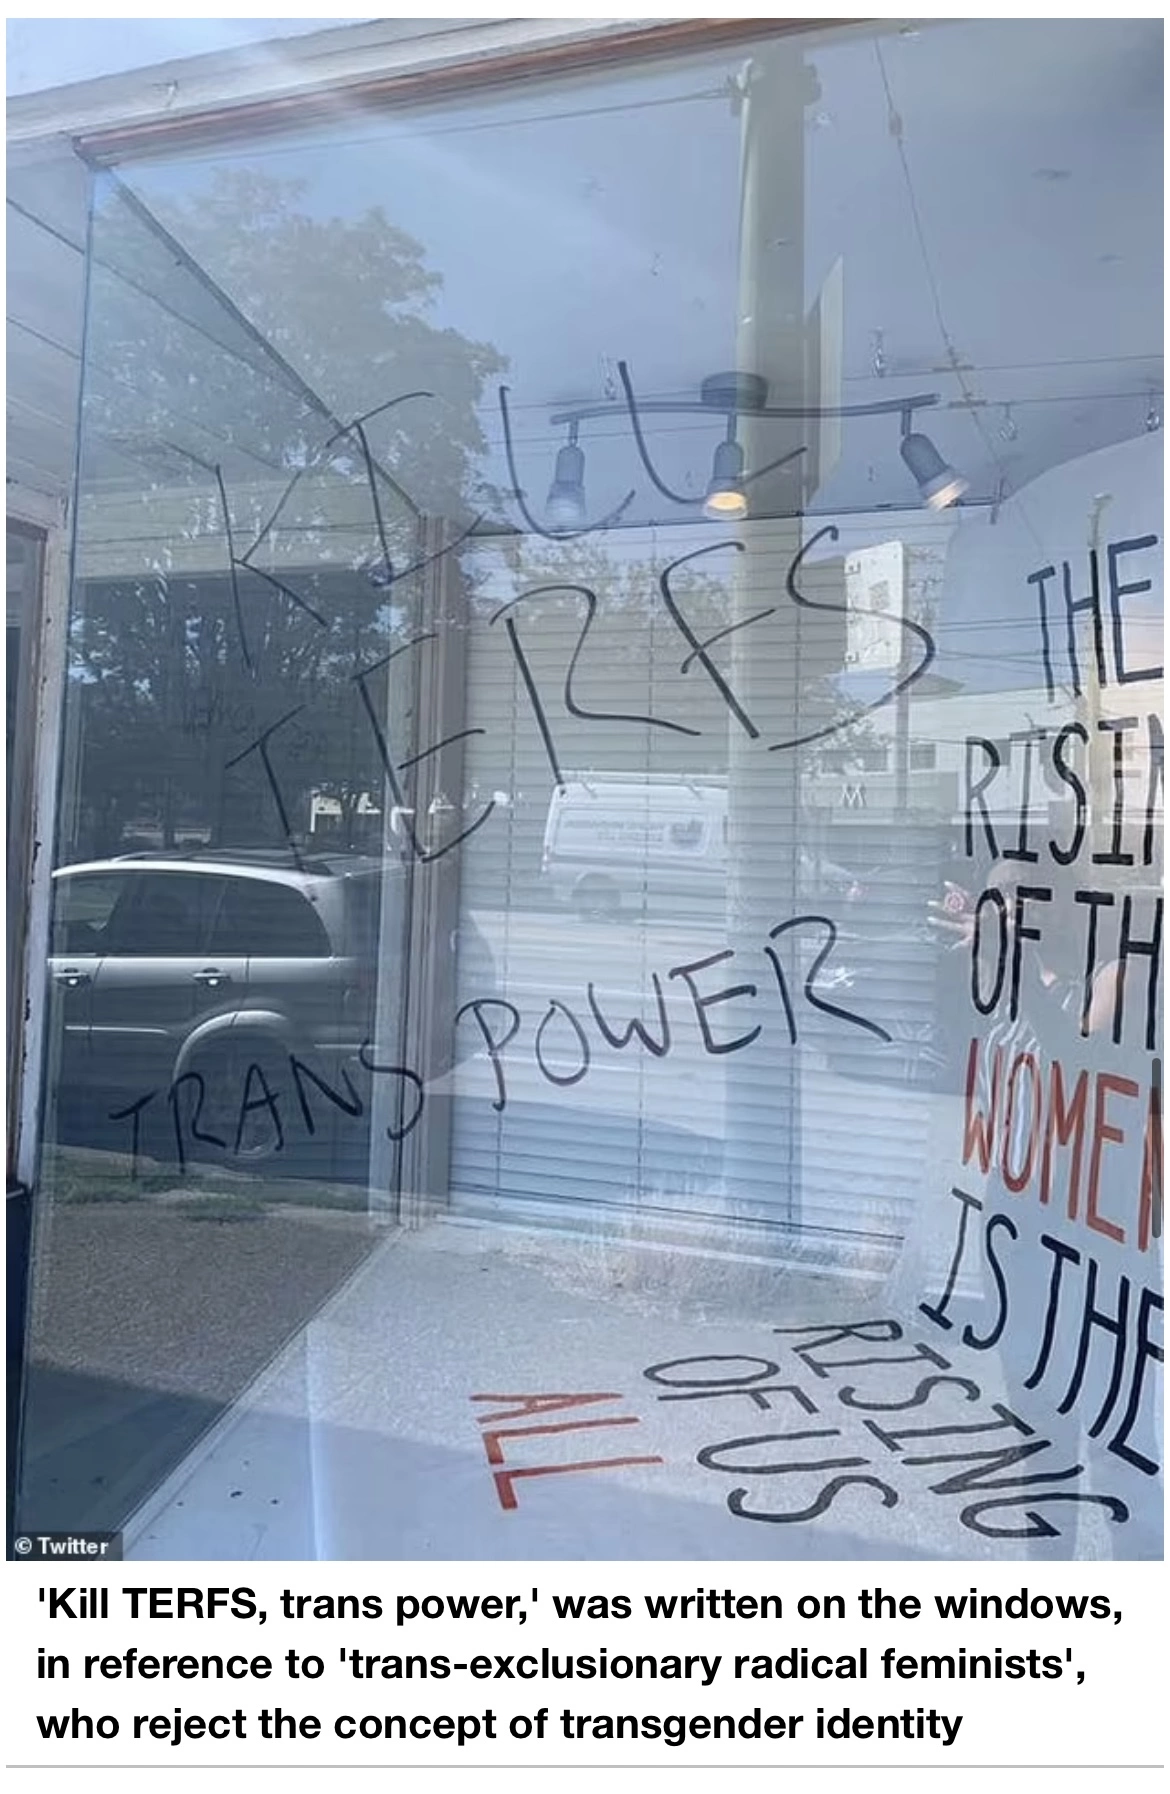 KILL
TERFS
TRANS POWER
THE
RISIN
OF TH
WOMEN
IS THE
RISING
OF US
ALL
© Twitter
'Kill TERFS, trans power,' was written on the windows,
in reference to 'trans-exclusionary radical feminists',
who reject the concept of transgender identity